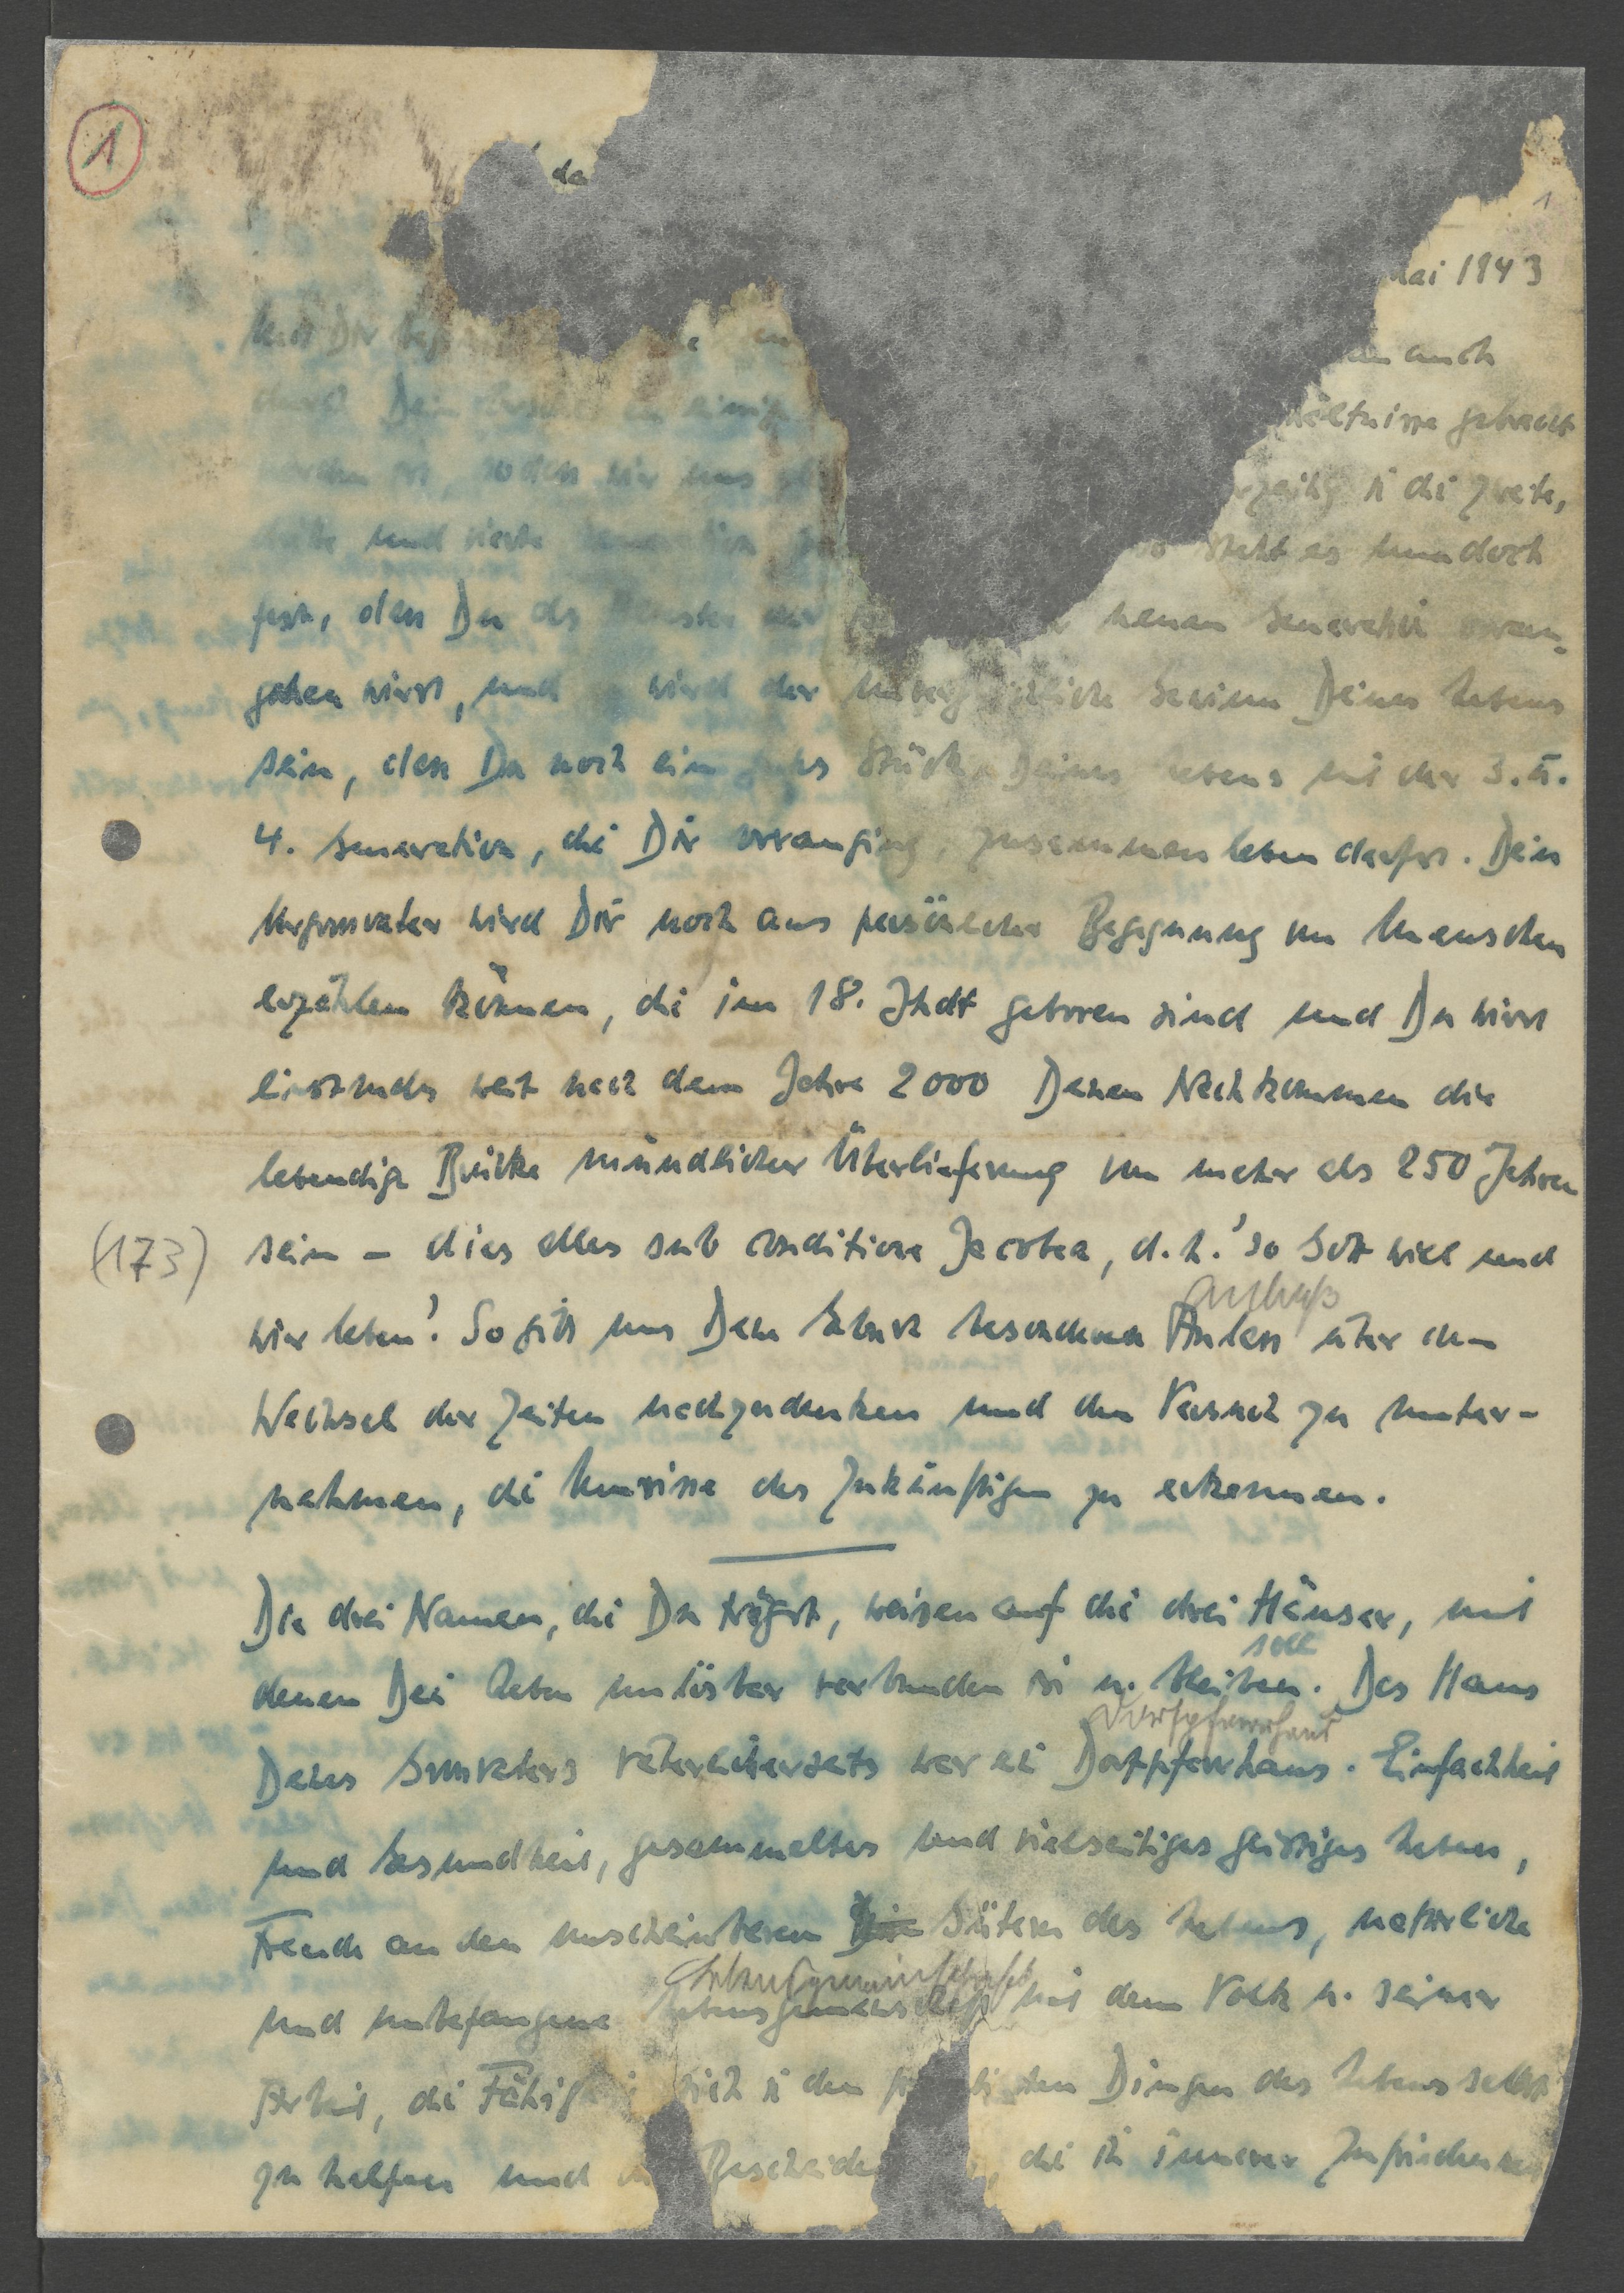 1
da
1
Mai 1943
Mit Dir beg
auch
durch Dein Urgroß
hältnisse gebracht
worden ist, sodass wir uns
rzeitig i. die zweite,
dritte und vierte Generation
so steht es nun doch
fest, dass Du als Ältester der neuen Generation voran-
gehen wirst, und wird der unvergleichliche Gewinn Deines Lebens
sein, dass Du noch ein gutes Stück Deines Lebens mit der 3. u.
4. Generation, die Dir voranging, zusammen leben darfst. Dein
Urgrossvater wird Dir noch aus persönlicher Begegnung von Menschen
erzählen können, die im 18. Jhdt geboren sind und Du wirst
einstmals weit nach dem Jahre 2000 Deinen Nachkommen die
lebendige Brücke mündlicher Überlieferung von mehr als 250 Jahren
(173)
sein – dies alles sub conditione Jacobea, d. h. 'so Gott will und
Anlaß
wir leben'. So gibt uns Deine Geburt besonderen Anlass über den
Wechsel der Zeiten nachzudenken und den Versuch zu unter-
nehmen, die Umrisse des Zukünftigen zu erkennen.
Die drei Namen, die Du trägst, weisen auf die drei Häuser, mit
soll
denen Dein Leben unlösbar verbunden ist u. bleiben. Das Haus
Dorfpfarrhaus
Deines Grossvaters väterlicherseits war ein Dorfpfarrhaus. Einfachheit
und Gesundheit, gesammeltes und vielseitiges geistiges Leben,
Freude an den unscheinbaren Gütern des Lebens, natürliche
Lebensgemeinschaft
und unbefangene Lebensgemeinschaft mit dem Volk u. seiner
Arbeit, die Fähigkeit sich i. den praktischen Dingen des Lebens selbst
zu helfen und die Bescheide die in innerer Zufriedenheit